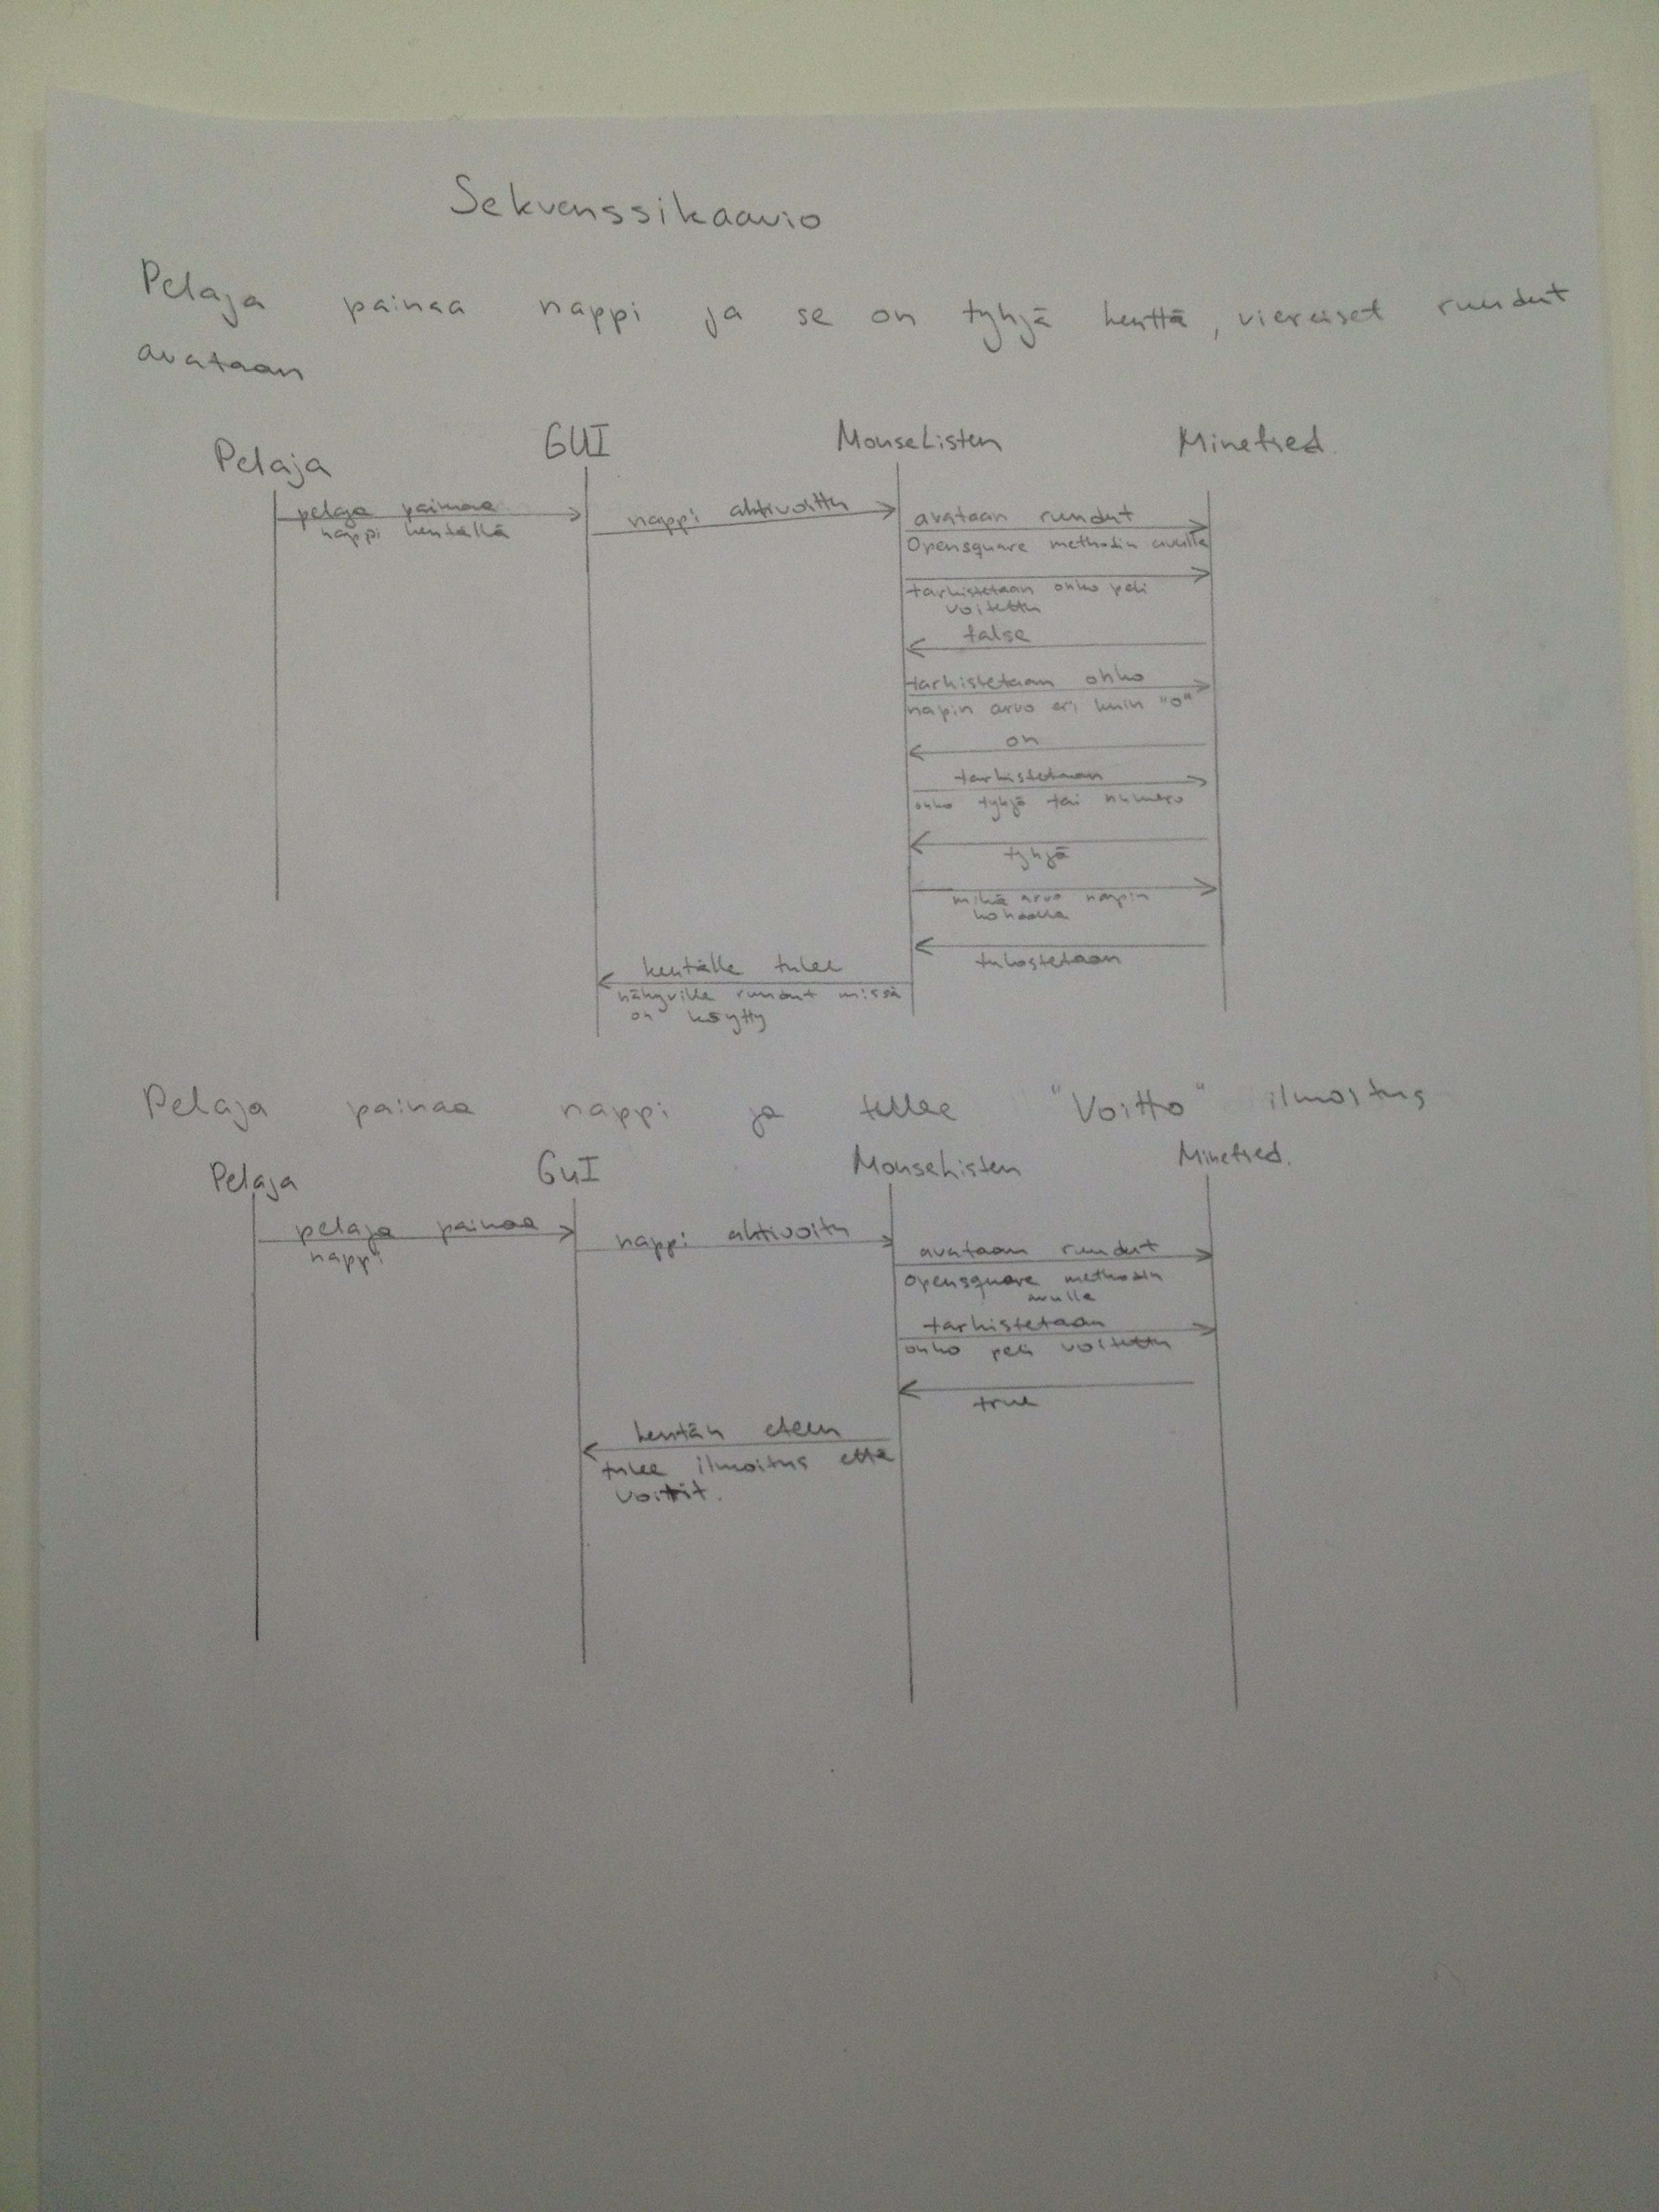 Sekvenssikaavio
Pelaja painaa nappi ja se on tyhjä kenttä, viereiset ruudut
avataan
Pelaja GUI MouseListen Minefied.
pelaja painaa
nappi kentällä
nappi aktivoittu
avataan ruudut
Opensquare methodin avulla
tarkistetaan onko peli
voitettu
false
tarkistetaan onko
napin arvo eri kuin "0"
on
tarkistetaan
onko tyhjä tai numero
tyhjä
mikä arvo napin
kohdalla
tulostetaan
kentälle tulee
nähyville ruudut missä
on käytty
Pelaja painaa nappi ja tullee "Voitto" ilmostus
Pelaja GUI MouseListen Minefied.
pelaja painaa
nappi
nappi aktivoitu
avataan ruudut
opensquare methodin
avulla
tarkistetaan
onko peli voitettu
true
kentän eteen
tulee ilmoitus että
voitit.